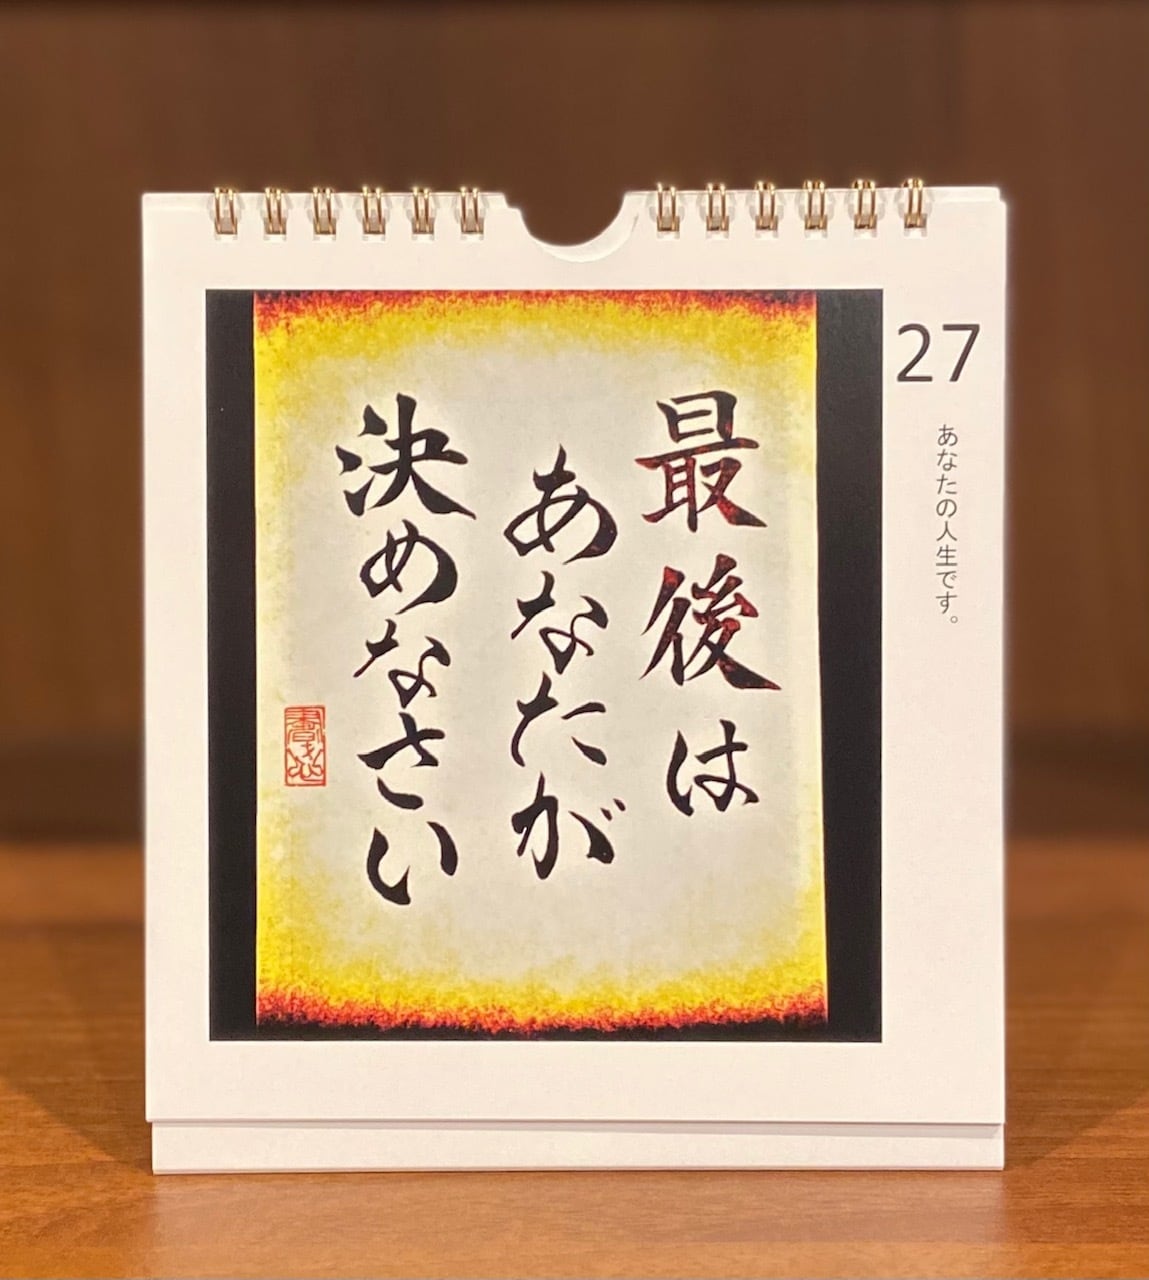 27
あなたの人生です。
最後は
あなたが
決めなさい